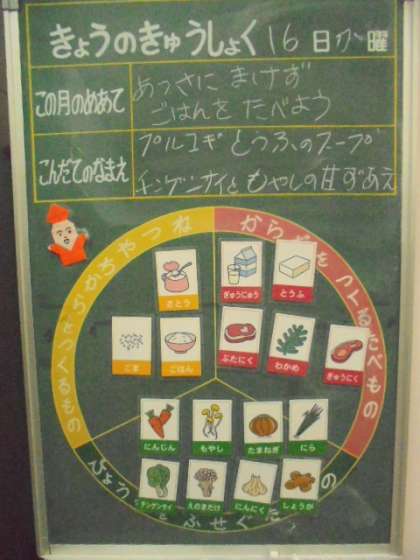 きょうのきゅうしょく 16日か曜
この月のめあて
あつさに まけず
ごはんを たべよう
こんだてのなまえ
プルコギ とうふのスープ
チンゲンサイと もやしの甘ずあえ
ねつやちからをつくるもの
からだをつくるたべもの
さとう
ぎゅうにゅう
とうふ
ごま
ごはん
ぶたにく
わかめ
ぎゅうにく
にんじん
もやし
たまねぎ
にら
チンゲンサイ
えのきだけ
にんにく
しょうが
びょう
ふせぐた
の